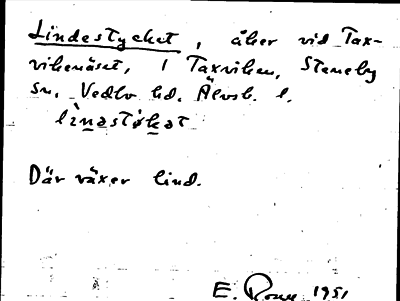 Lindestycket, åker vid Tax-
vikenäset, 1 Taxviken, Steneby
sn. Vedbo hd. Älvsb. l.
lìnastökat
Där växer lind.
E. 1951